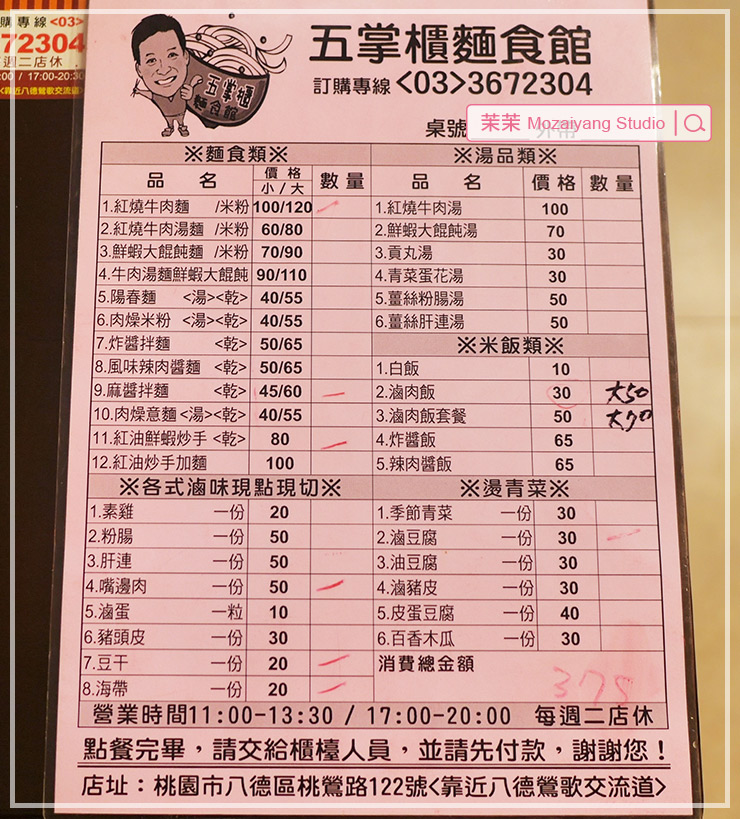 購專線<03>
72304
週二店休
:00 / 17:00-20:30
<靠近八德鶯歌交流道>
五掌櫃
麵食館
五掌櫃麵食館
訂購專線<03>3672304
茉茉 Mozaiyang Studio
桌號
※麵食類※
品 名 價格 小/大 數量
1.紅燒牛肉麵 /米粉 100/120
2.紅燒牛肉湯麵 /米粉 60/80
3.鮮蝦大餛飩麵 /米粉 70/90
4.牛肉湯麵鮮蝦大餛飩 90/110
5.陽春麵 <湯><乾> 40/55
6.肉燥米粉 <湯><乾> 40/55
7.炸醬拌麵 <乾> 50/65
8.風味辣肉醬麵 <乾> 50/65
9.麻醬拌麵 <乾> 45/60
10.肉燥意麵<湯><乾> 40/55
11.紅油鮮蝦炒手 <乾> 80
12.紅油炒手加麵 100
※湯品類※
品 名 價格 數量
1.紅燒牛肉湯 100
2.鮮蝦大餛飩湯 70
3.貢丸湯 30
4.青菜蛋花湯 30
5.薑絲粉腸湯 50
6.薑絲肝連湯 50
※米飯類※
1.白飯 10
2.滷肉飯 30 大50
3.滷肉飯套餐 50 大70
4.炸醬飯 65
5.辣肉醬飯 65
※各式滷味現點現切※
1.素雞 一份 20
2.粉腸 一份 50
3.肝連 一份 50
4.嘴邊肉 一份 50
5.滷蛋 一粒 10
6.豬頭皮 一份 30
7.豆干 一份 20
8.海帶 一份 20
※燙青菜※
1.季節青菜 一份 30
2.滷豆腐 一份 30
3.油豆腐 一份 30
4.滷豬皮 一份 30
5.皮蛋豆腐 一份 40
6.百香木瓜 一份 30
消費總金額
營業時間11:00-13:30 / 17:00-20:00 每週二店休
點餐完畢，請交給櫃檯人員，並請先付款，謝謝您！
店址：桃園市八德區桃鶯路122號<靠近八德鶯歌交流道>